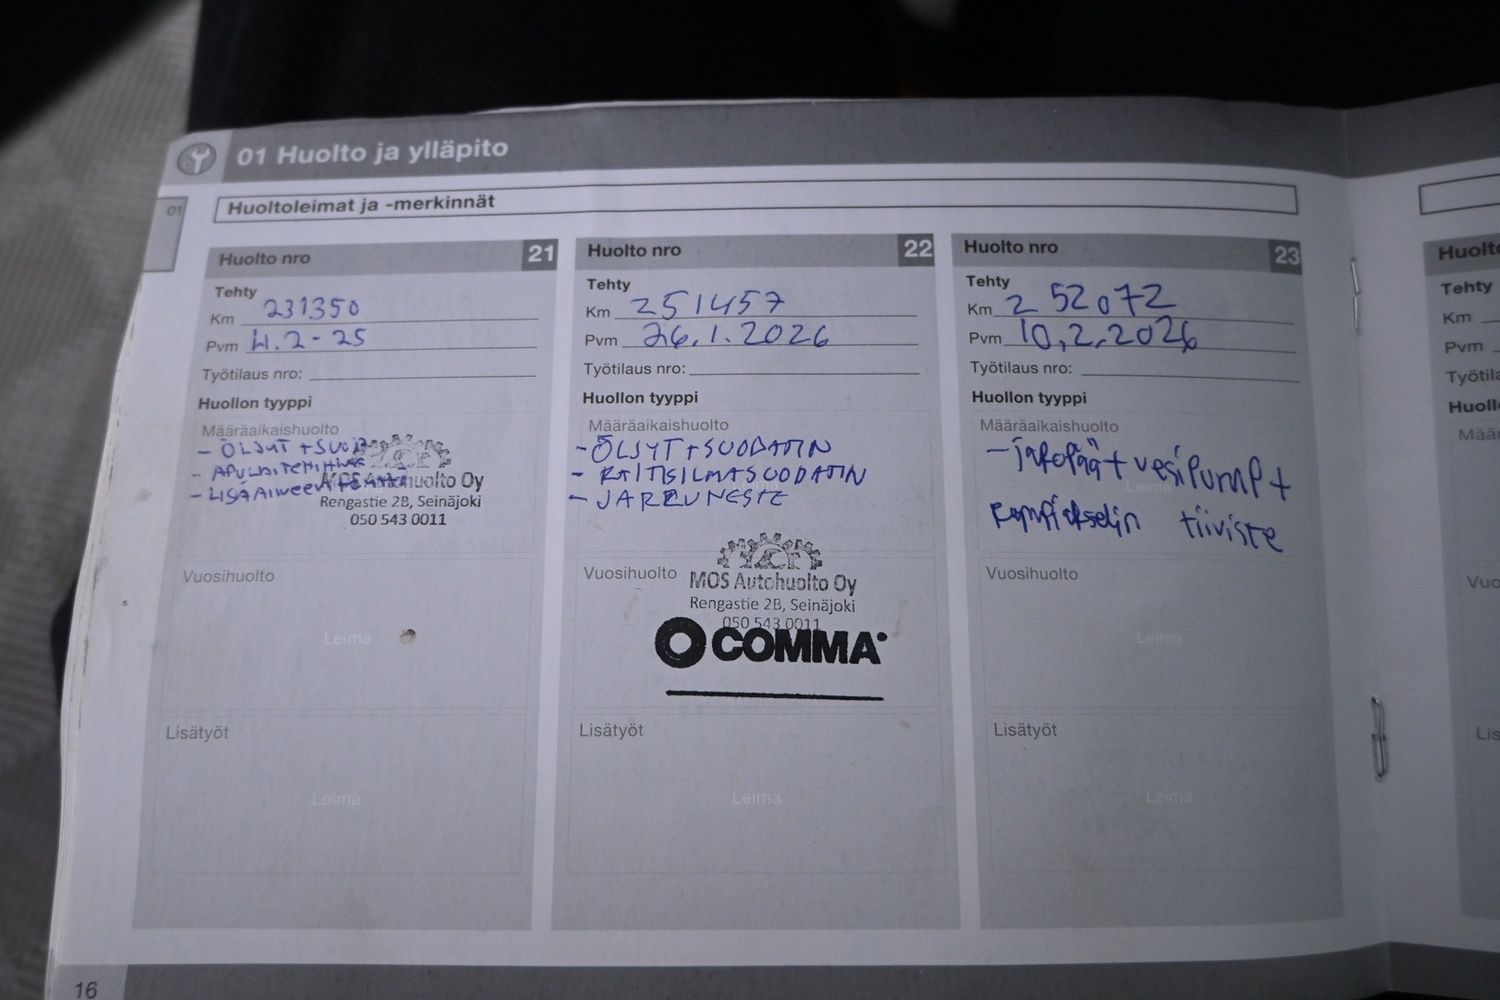 01 Huolto ja ylläpito
01
Huoltoleimat ja -merkinnät
Huolto nro 21
Tehty
Km 231350
Pvm 4.2-25
Työtilaus nro:
Huollon tyyppi
Määräaikaishuolto
- ÖLJYT + SUOD
-
- LISÄAINEEN
Autohuolto Oy
Rengastie 2B, Seinäjoki
050 543 0011
Vuosihuolto
Leima
Lisätyöt
Leima
Huolto nro 22
Tehty
Km 251457
Pvm 26.1.2026
Työtilaus nro:
Huollon tyyppi
Määräaikaishuolto
- ÖLJYT + SUODATIN
- RAITISILMASUODATIN
- JARRUNESTE
Vuosihuolto
MOS Autohuolto Oy
Rengastie 2B, Seinäjoki
050 543 0011
COMMA
Lisätyöt
Leima
Huolto nro 23
Tehty
Km 252072
Pvm 10.2.2026
Työtilaus nro:
Huollon tyyppi
Määräaikaishuolto
- jakopää + vesipump +
kampiakselin tiiviste
Leima
Vuosihuolto
Leima
Lisätyöt
Leima
Huolto
Tehty
Km
Pvm
16